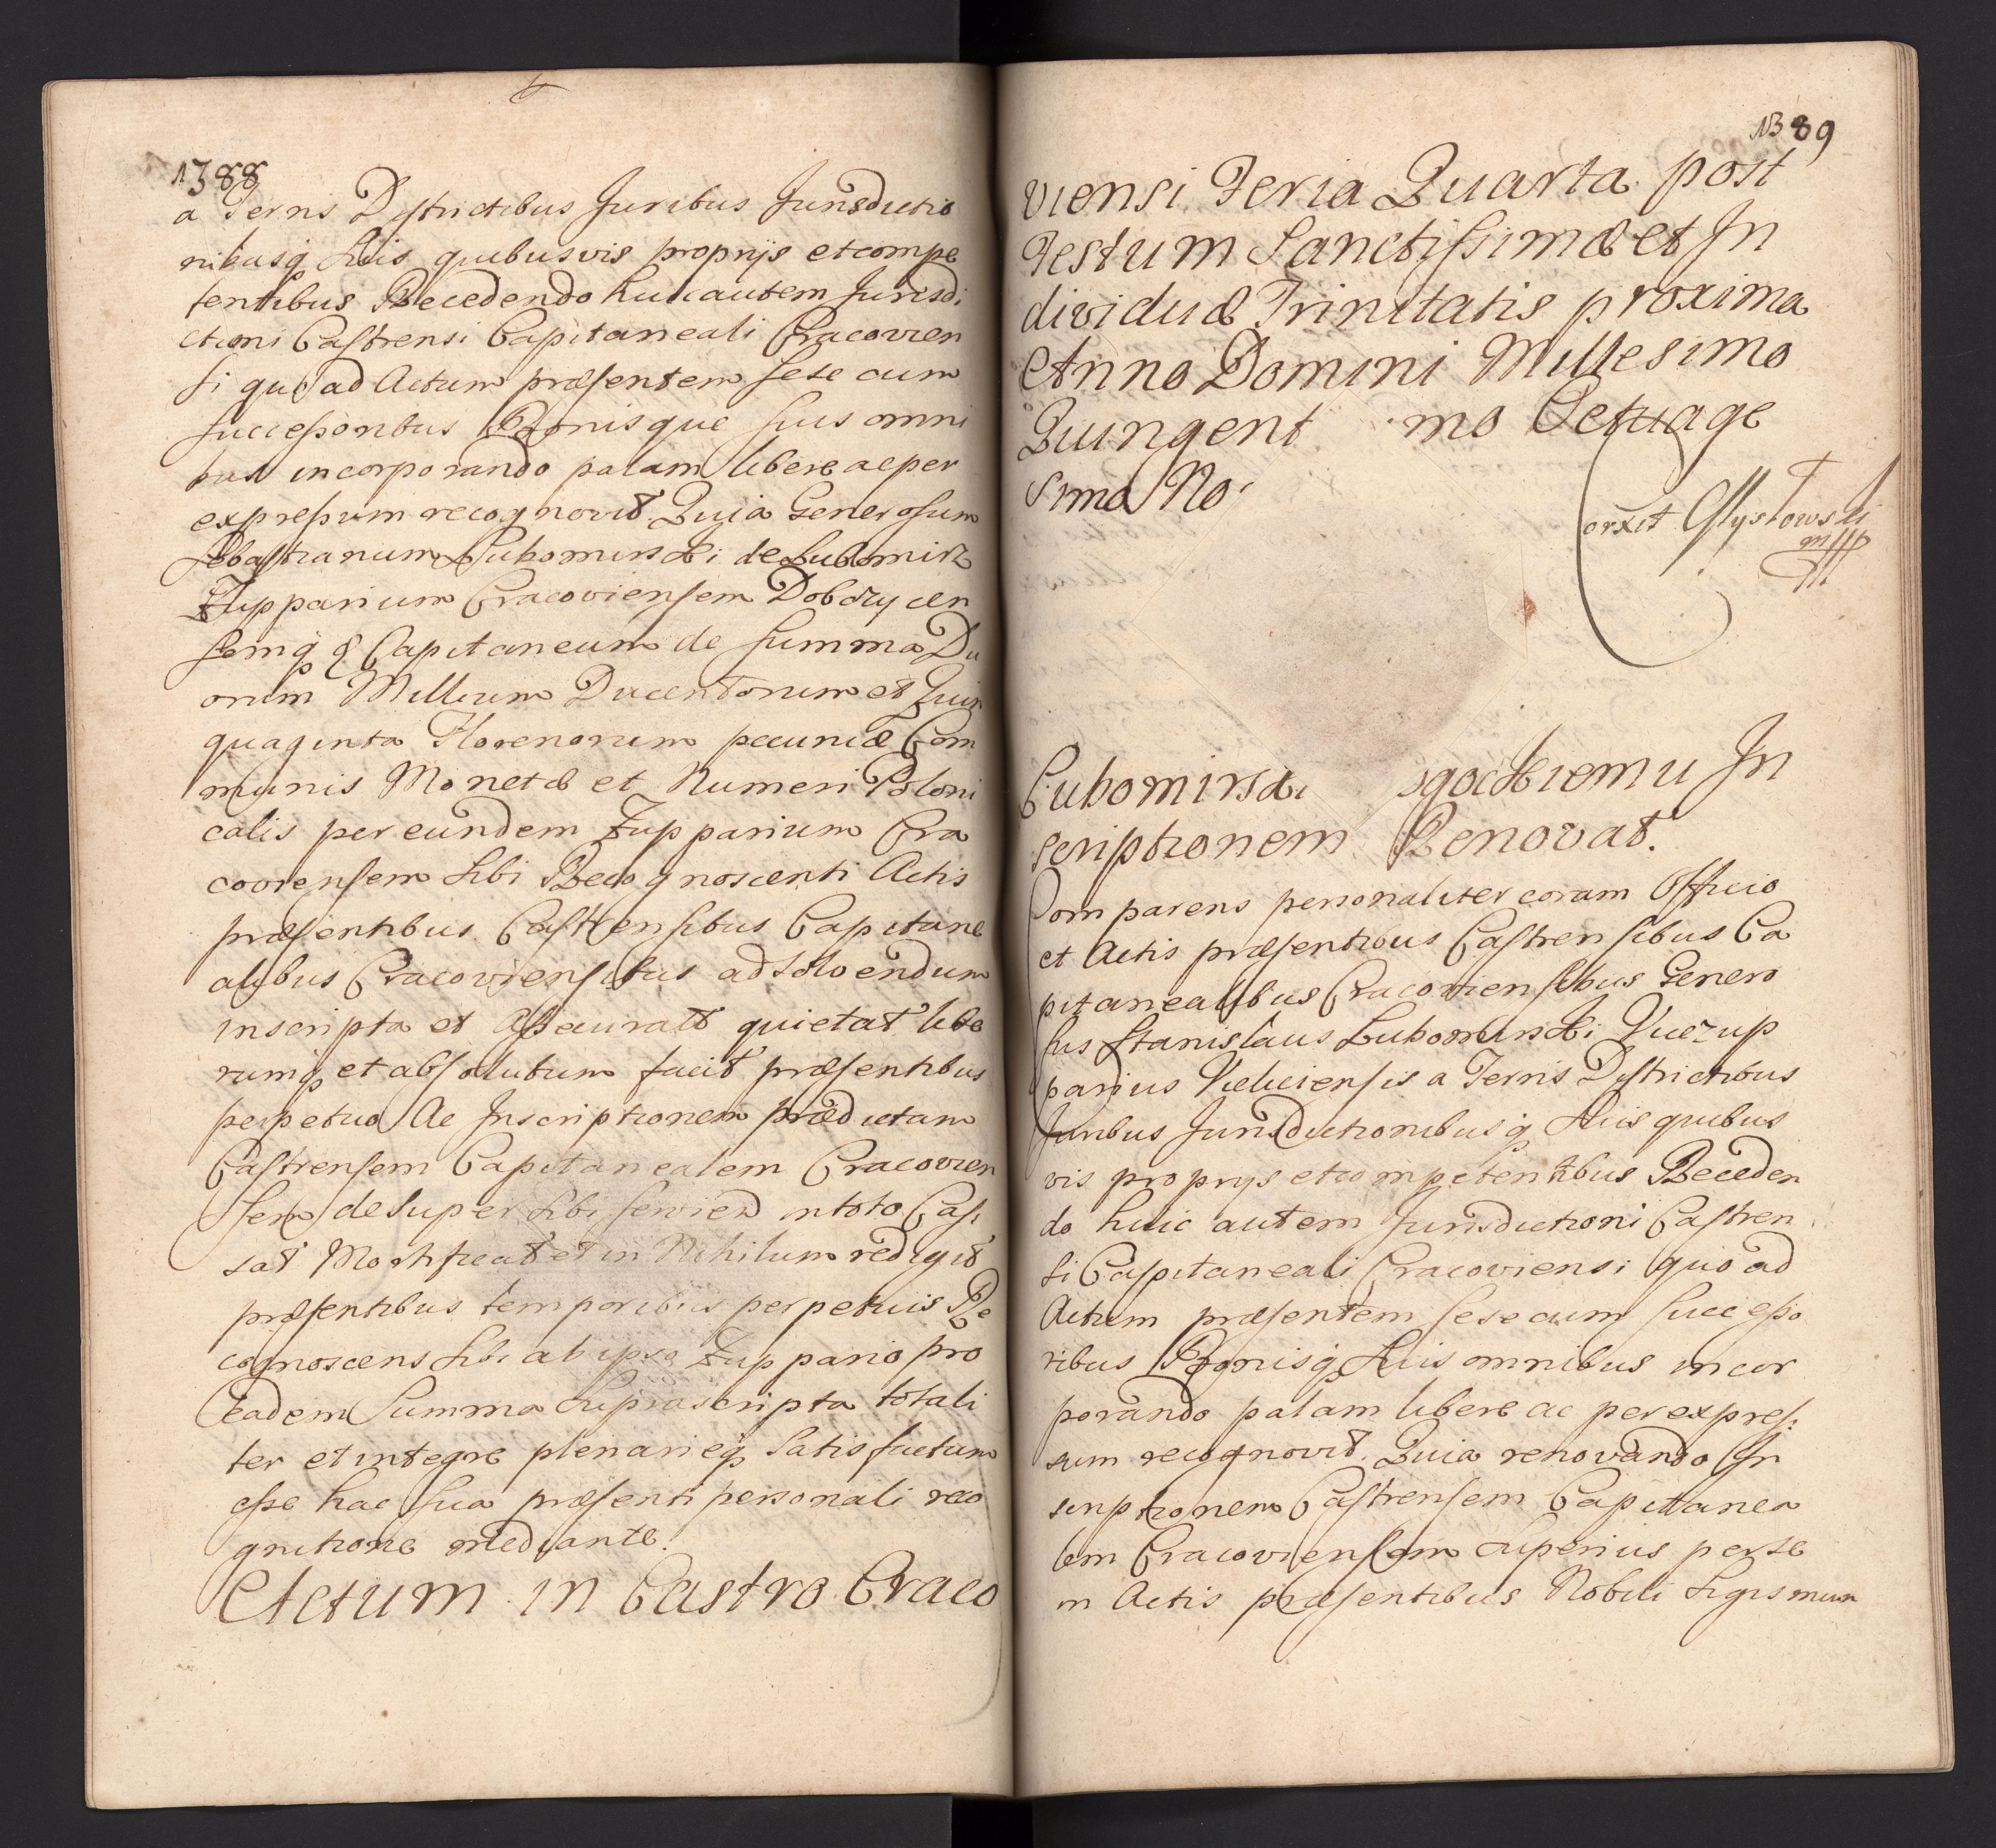 1388
a Terris Districtibus Juribus Jurisdictio
nibusq; Suis quibusvis proprijs et compe
tentibus Recedendo huic autem Jurisdi
ctioni Castrensi Capitaneali Cracovien
si quo ad Actum præsentem sese cum
successoribus Bonisque suis omni
bus incorporando palam libere ac per
expressum recognovit Quia Generosum
Sebastianum Lubomirski de Lubomirz
Zupparium Cracoviensem Dobczycen
semq; Capitaneum de summa Du
orum Millium Ducentorum et Quin
quaginta Florenorum pecuniæ Com
munis Monetæ et Numeri Poloni
calis per eundem Zupparium Cra
coviensem Sibi Recognoscenti Actis
præsentibus Castrensibus Capitane
alibus Cracoviensibus ad solvendum
inscripta et Assecurata quietat libe
rumq; et absolutum facit præsentibus
perpetuo Ac Inscriptionem prædictam
Castrensem Capitanealem Cracovien
sem desuper Sibi servien in toto Cas
sat Mortificat et in Nihilum redigit
præsentibus temporibus perpetuis Re
cognoscens Sibi ab ipso Zuppario pro
eadem Summa Suprascripta totali
ter et integre plenarieq; Satisfactum
esse hac sua præsenti personali reco
gnitione mediante.
Actum in Castro Craco
1389
viensi Feria Quarta post
Festum Sanctissimæ et In
dividuæ Trinitatis proxima
Anno Domini Millesimo
Quingent mo Octuage
simo No
Corxit
mpp
Lubomirski In
scriptionem Renovat.
Comparens personaliter coram Officio
et Actis præsentibus Castrensibus Ca
pitanealibus Cracoviensibus Genero
sus Stanislaus Lubomirski Vicezup
parius Vieliciensis a Terris Districtibus
Juribus Jurisdictionibusq; Suis quibus
vis proprijs et competentibus Receden
do huic autem Jurisdictioni Castren
si Capitaneali Cracoviensi quo ad
Actum præsentem sese cum successo
ribus Bonisq; Suis omnibus incor
porando palam libere ac per expres
sum recognovit. Quia renovando In
scriptionem Castrensem Capitanea
lem Cracoviensem Superius per se
in Actis præsentibus Nobili Sigismun